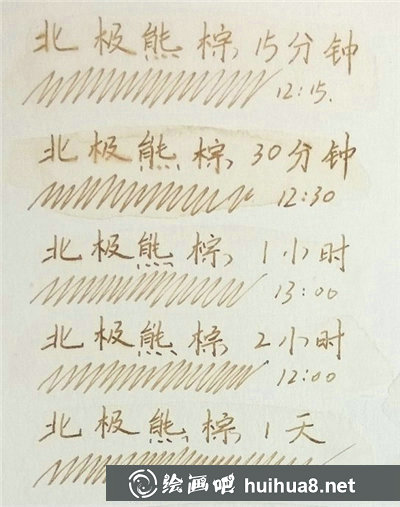 北极熊棕 15分钟
12:15.
北极熊棕 30分钟
12:30
北极熊棕 1小时
13:00
北极熊棕 2小时
12:00
北极熊棕 1天
绘画吧 huihua8.net